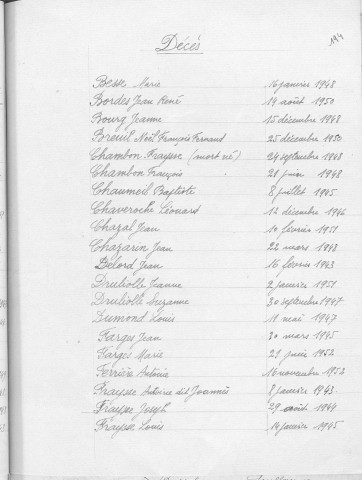 194
Décès
Besse Marie 16 janvier 1948
Bordes Jean René 14 août 1950
Bourg Jeanne 15 décembre 1948
Breuil Noël François Fernand 25 décembre 1950
Chambon Fraysse (mort né) 24 septembre 1943
Chambon François 21 juin 1948
Chaumeil Baptiste 8 juillet 1945
Chaveroche Léonard 12 décembre 1946
Chazal Jean 10 février 1951
Chazarin Jean 22 mars 1948
Delord Jean 16 février 1943
Druliolle Jeanne 2 janvier 1951
Druliolle Suzanne 30 septembre 1947
Dumond Louis 11 mai 1947
Farge Jean 30 mars 1945
Farges Marie 21 juin 1952
Ferrière Antoine 16 novembre 1952
Fraysse Antoine dit Joannès 8 janvier 1943
Fraysse Joseph 29 août 1944
Fraysse Louis 14 janvier 1945